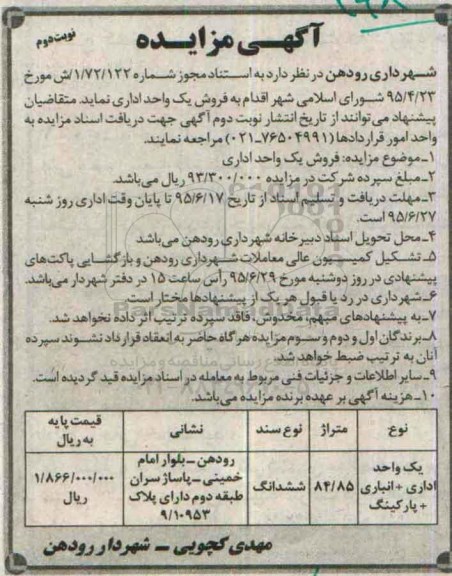 آگهی مزایده
نوبت دوم
شهرداری رودهن در نظر دارد به استناد مجوز شماره ۱/۷۲/۱۲۲/ش مورخ
۹۵/۴/۲۳ شورای اسلامی شهر اقدام به فروش یک واحد اداری نماید. متقاضیان
پیشنهاد می‌توانند از تاریخ انتشار نوبت دوم آگهی جهت دریافت اسناد مزایده به
واحد امور قراردادها (۷۶۵۰۴۹۹۱-۰۲۱) مراجعه نمایند.
۱-موضوع مزایده: فروش یک واحد اداری
۲-مبلغ سپرده شرکت در مزایده ۹۳/۳۰۰/۰۰۰ ریال می‌باشد.
۳-مهلت دریافت و تسلیم اسناد از تاریخ ۹۵/۶/۱۷ تا پایان وقت اداری روز شنبه
۹۵/۶/۲۷ است.
۴-محل تحویل اسناد دبیرخانه شهرداری رودهن می‌باشد
۵-تشکیل کمیسیون عالی معاملات شهرداری رودهن و بازگشایی پاکت‌های
پیشنهادی در روز دوشنبه مورخ ۹۵/۶/۲۹ رأس ساعت ۱۵ در دفتر شهردار می‌باشد.
۶-شهرداری در رد یا قبول هر یک از پیشنهادها مختار است.
۷-به پیشنهادهای مبهم، مخدوش، فاقد سپرده ترتیب اثر داده نخواهد شد.
۸-برندگان اول و دوم و سوم مزایده هر گاه حاضر به انعقاد قرارداد نشوند سپرده
آنان به ترتیب ضبط خواهد شد.
۹-سایر اطلاعات و جزئیات فنی مربوط به معامله در اسناد مزایده قید گردیده است.
۱۰-هزینه آگهی بر عهده برنده مزایده می‌باشد.
نوع
متراژ
نوع سند
نشانی
قیمت پایه
به ریال
یک واحد
اداری +انباری
+ پارکینگ
۸۴/۸۵
ششدانگ
رودهن-بلوار امام
خمینی-پاساژ سران
طبقه دوم دارای پلاک
۹/۱۰۹۵۳
۱/۸۶۶/۰۰۰/۰۰۰
ریال
مهدی کچویی – شهردار رودهن